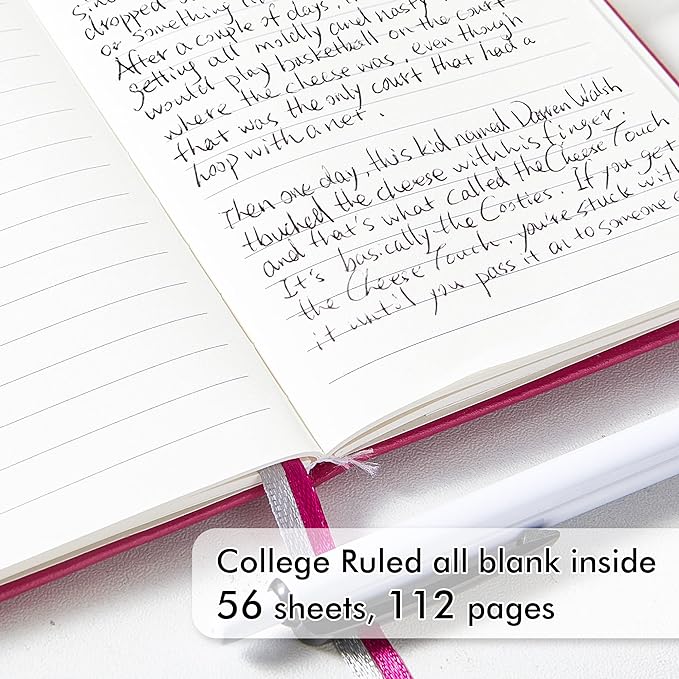 dropped
or something
After a couple of days, it
getting all moldly and nasty
would play basketball on the court
where the cheese was, even though
that was the only court that had a
hoop with a net.
Then one day, this kid named Darren Walsh
touched the cheese with his finger,
and that's what called the Cheese Touch
It's basically the Cooties. If you get
the Cheese Touch, you're stuck with
it until you pass it on to someone
College Ruled all blank inside
56 sheets, 112 pages